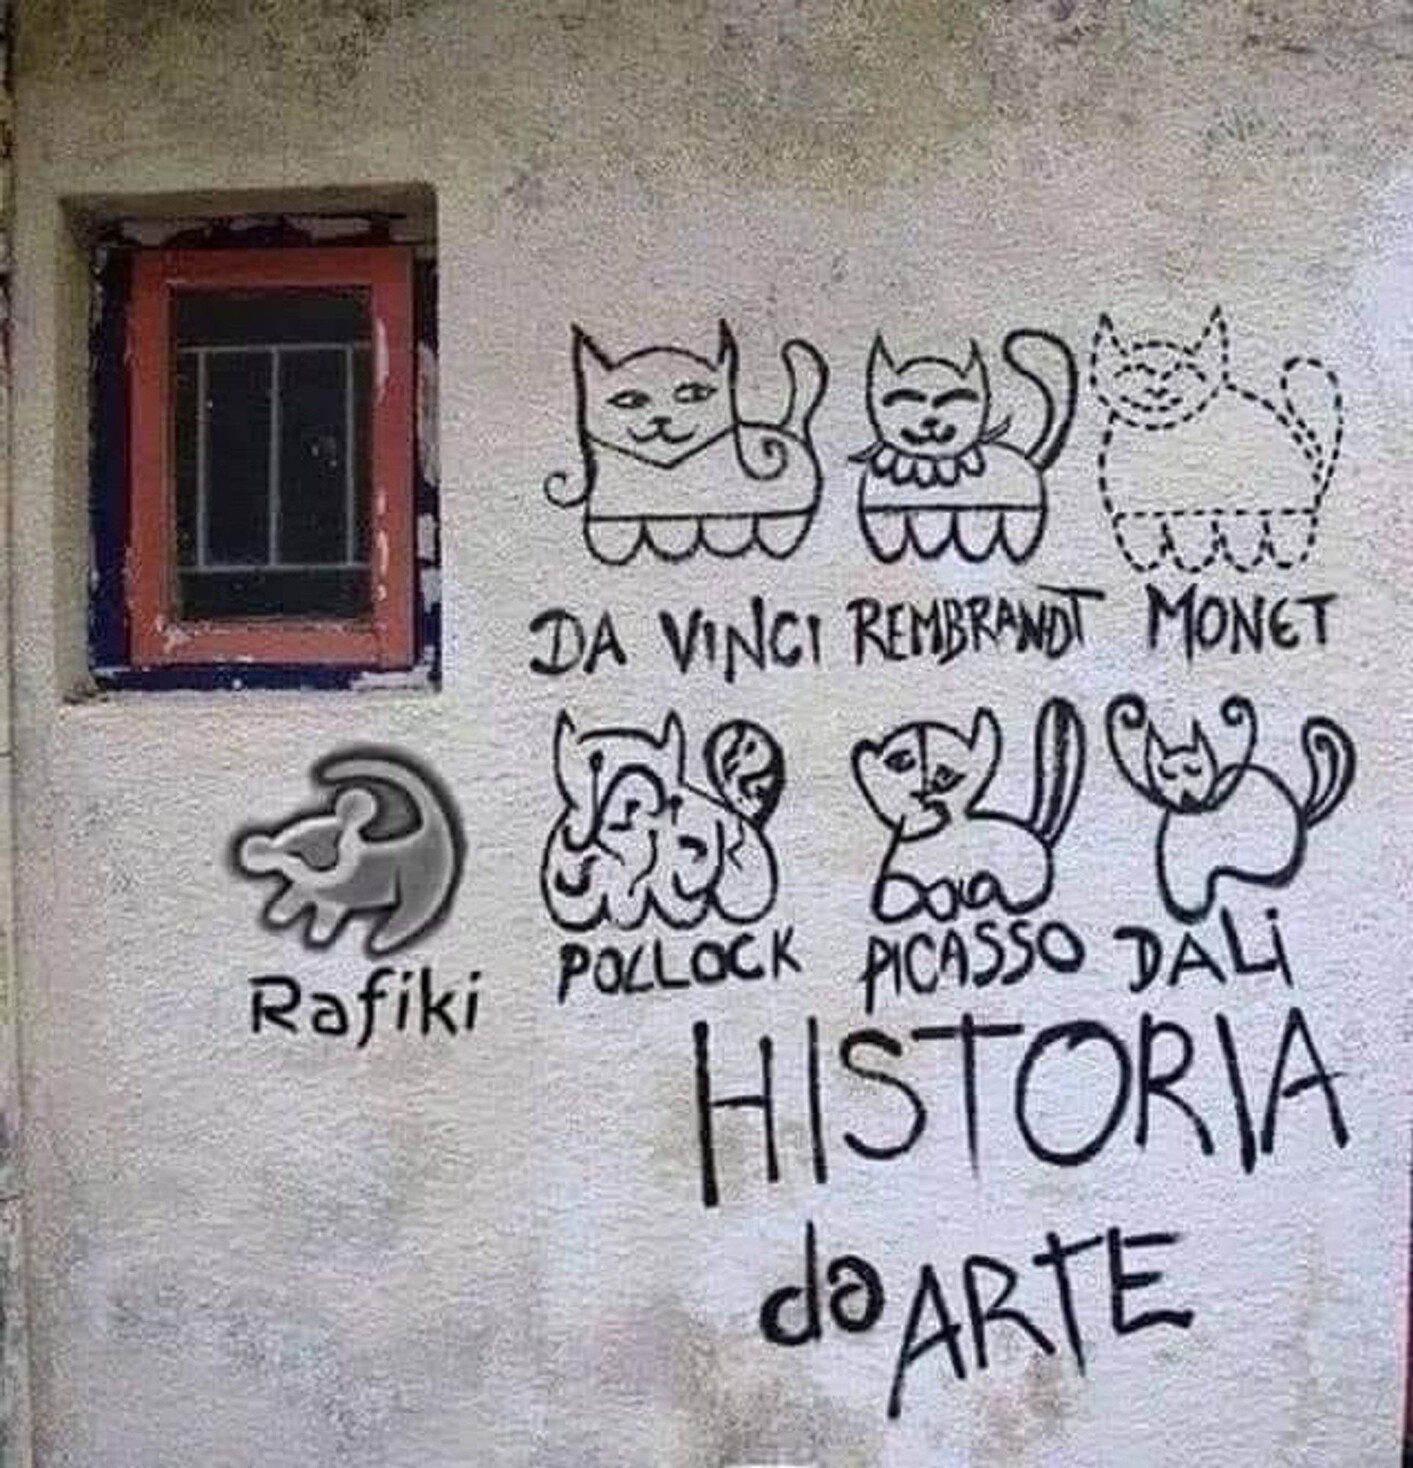 DA VINCI REMBRANDT MONET
POLLOCK PICASSO DALi
Rafiki
HISTORIA
da ARTE